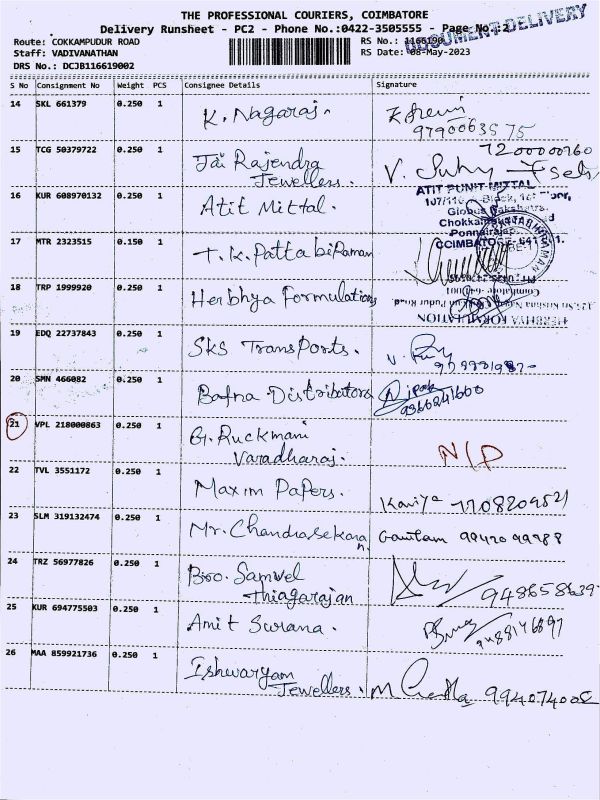 THE PROFESSIONAL COURIERS, COIMBATORE
Delivery Runsheet - PC2 - Phone No.:0422-3505555 - Page No.:2
DOCUMENT DELIVERY
Route: COKKAMPUDUR ROAD RS No.: 1166190
Staff: VADIVANATHAN RS Date: 08-May-2023
DRS No.: DCJB116619002
S No Consignment No Weight PCS Consignee Details Signature
14 SKL 661379 0.250 1 K. Nagaraj.
9790063575
15 TCG 50379722 0.250 1 Jai Rajendra
Jewellers. 7200000760
16 KUR 608970132 0.250 1 Atit Mittal.
ATIT PUNIT MITTAL
17 MTR 2323515 0.150 1 T.K. Pattabiraman
COIMBATORE - 641
18 TRP 1999920 0.250 1 Herbhya Formulations
HERBHYA FORMULATION
19 EDQ 22737843 0.250 1 SKS Transports.
20 SMN 466082 0.250 1 Bafna Distributors
9360241600
21 VPL 218000863 0.250 1 G. Ruckmani
Varadharaj. N/D
22 TVL 3551172 0.250 1 Maxim Papers.
Kaviya 7708209521
23 SLM 319132474 0.250 1 Mr. Chandrasekaran. Gautam 9942099988
24 TRZ 56977826 0.250 1 Bro. Samuel
Thiagarajan 948658639
25 KUR 694775503 0.250 1 Amit Surana.
9488146897
26 MAA 859921736 0.250 1 Ishwaryam
Jewellers. 994074002